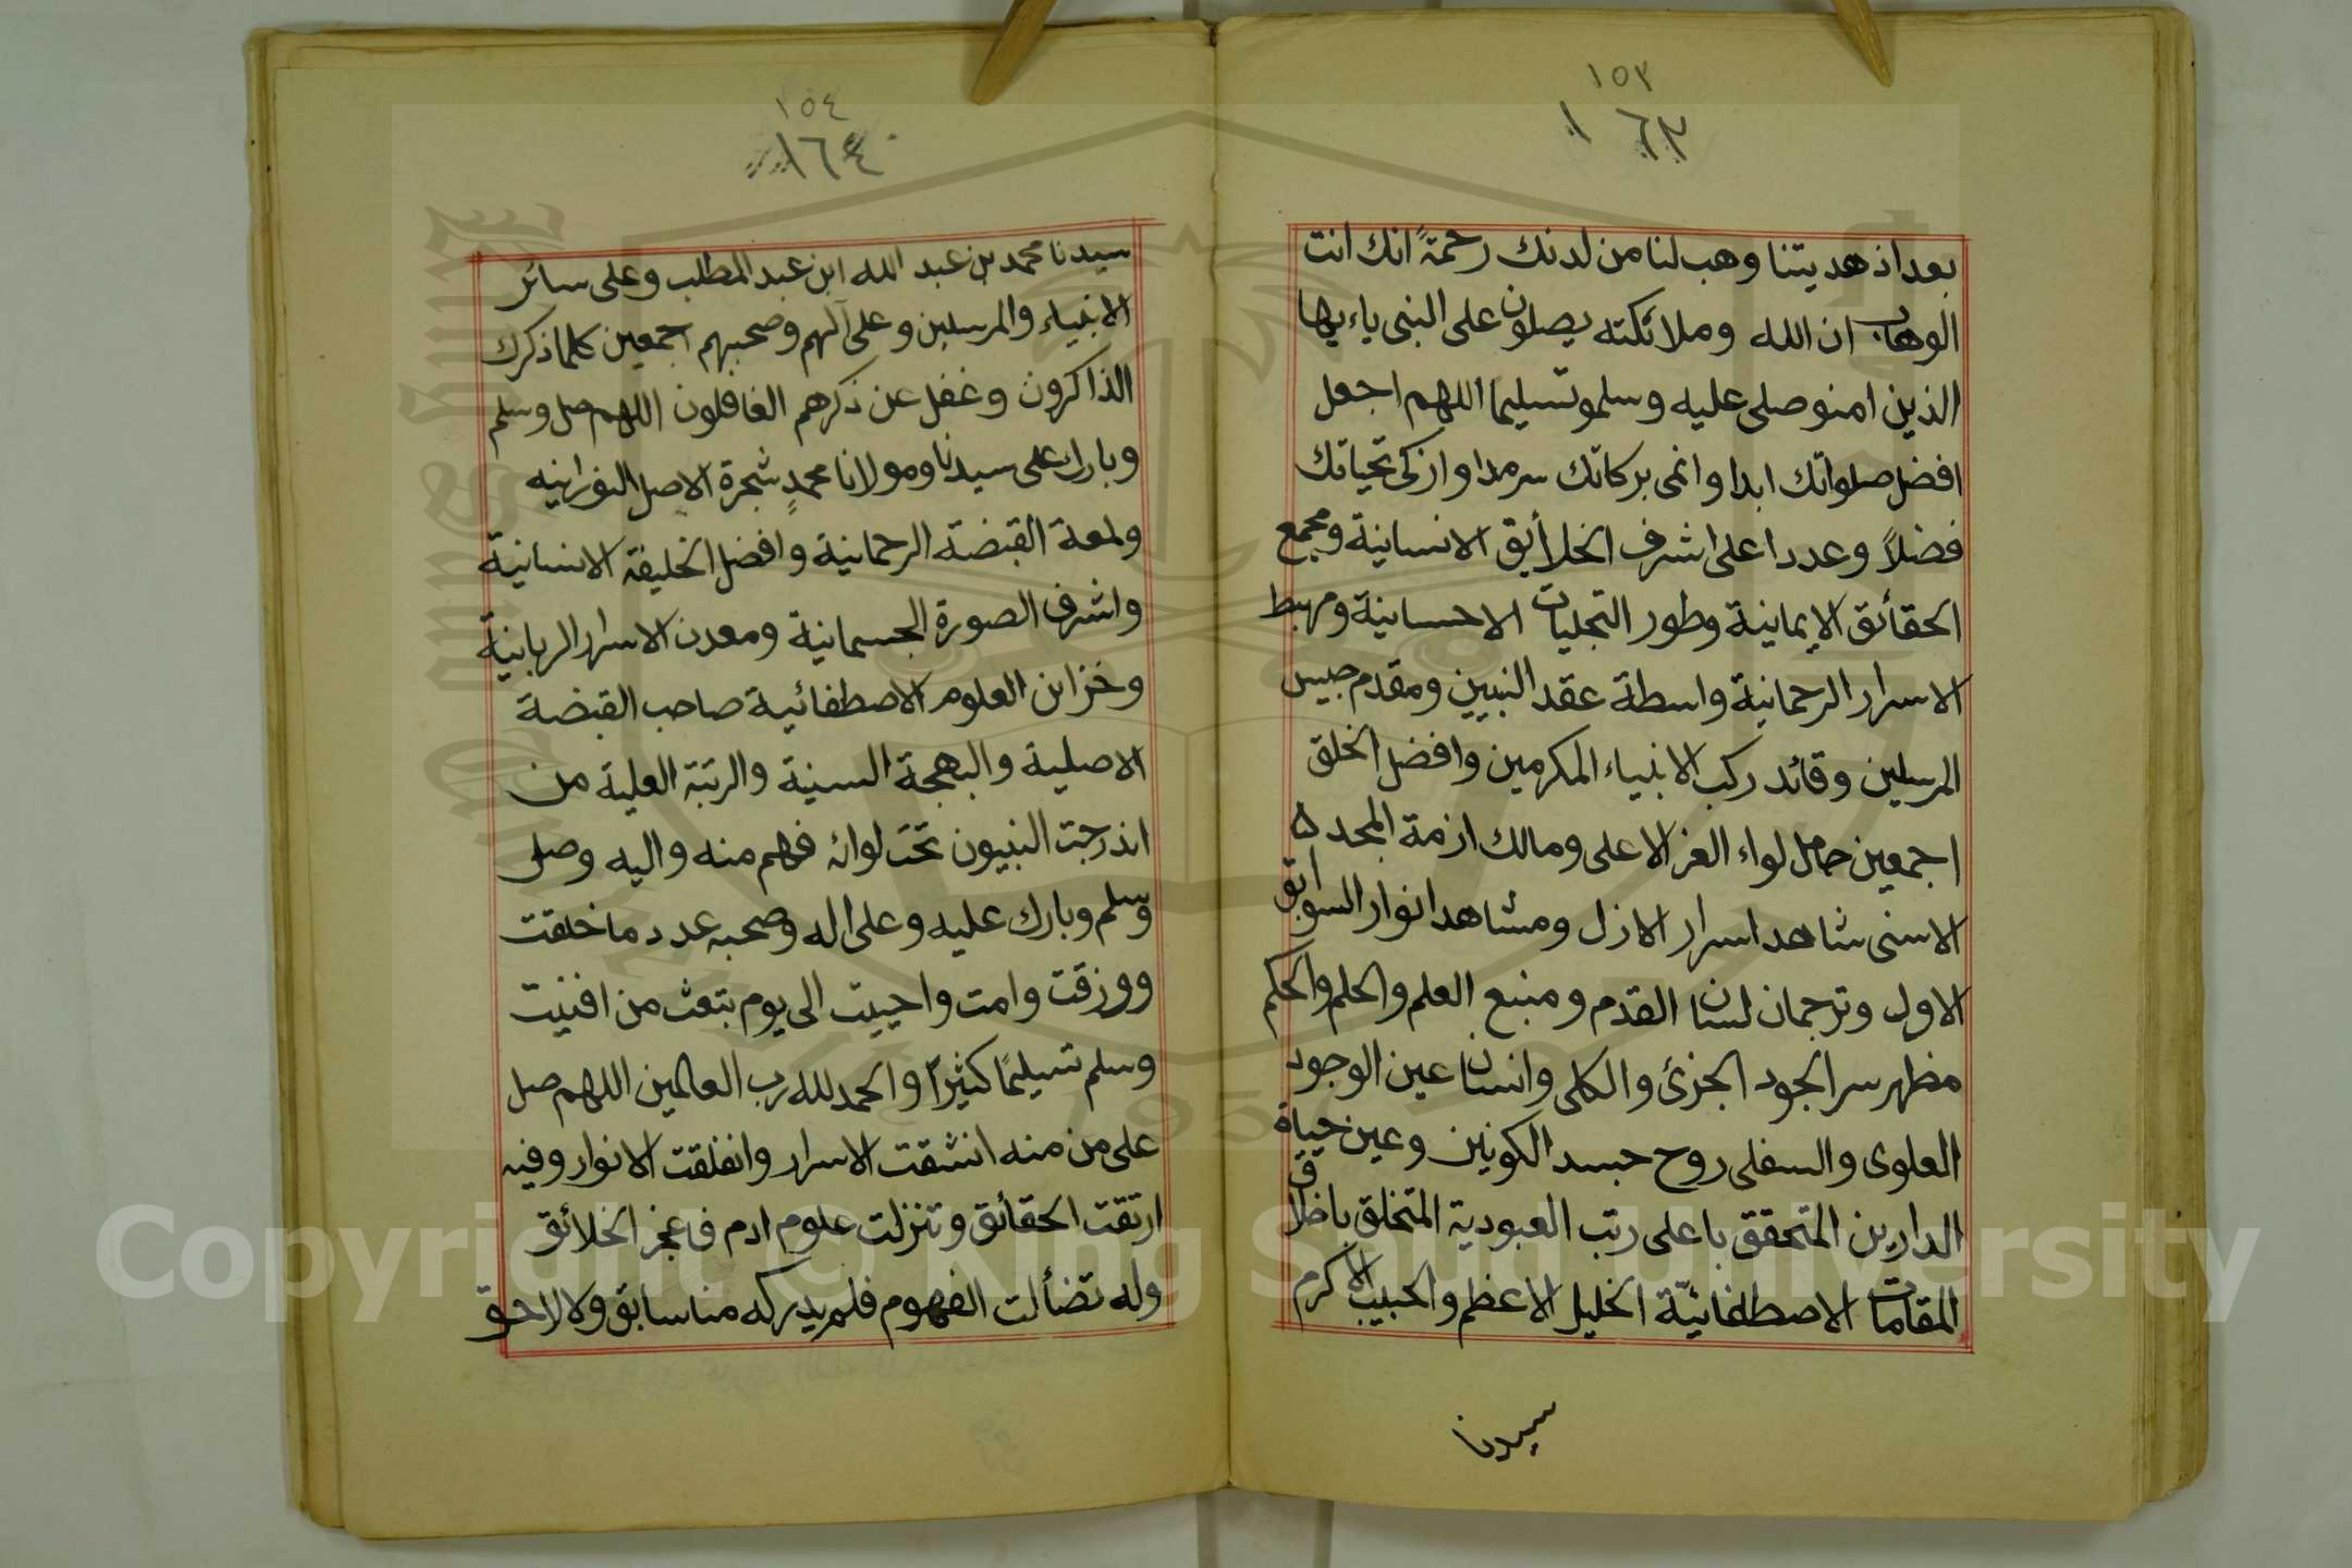 ١٥٣
١٦٣
بعد اذ هديتنا وهب لنا من لدنك رحمةً انك انت
الوهاب ان الله وملائكته يصلون على النبى ياءيها
الذين امنو صلى عليه وسلمو تسليما اللهم اجعل
افضل صلواتك ابدا وانمى بركاتك سرمدا وازكى تحياتك
فضلاً وعددا على اشرف الخلأيق الانسانية ومجمع
الحقائق الايمانية وطور التجليات الاحسانية ومهبط
الاسرار الرحمانية واسطة عقد النبيين ومقدم جيس
المرسلين وقائد ركب الانبياء المكرمين وافضل الخلق
اجمعين حامل لواء العز الاعلى ومالك ازمة المجد ٥
الاسنى شاهد اسرار الازل ومشاهد انوار السوابق
الاول وترجمان لسان القدم ومنبع العلم والحلم والحكم
مظهر سر الجود الجزئ والكلى وانسان عين الوجود
العلوى والسفلى روح جسد الكونين وعين حياة
الدارين المتحقق باعلى رتب العبودية المتخلق باخلاق
المقامات الاصطفائيّة الخليل الاعظم والحبيب الاكرم
سيدنا
١٥٤
١٦٤
سيدنا محمد بن عبد الله ابن عبد المطلب وعلى سائر
الانبياء والمرسلين وعلى آلهم وصحبهم اجمعين كلما ذكرك
الذاكرون وغفل عن ذكرهم الغافلون اللهم صل وسلم
وبارك على سيدنا ومولانا محمدٍ شجرة الاصل النورانيه
ولمعة القبضة الرحمانية وافضل الخليقة الانسانية
واشرف الصورة الجسمانية ومعدن الاسرار الربانية
وخزاين العلوم الاصطفائية صاحب القبضة
الاصلية والبهجة السنية والرتبة العلية من
اندرجت النبيون تحت لوائه فهم منه واليه وصل
وسلم وبارك عليه وعلى اله وصحبه عدد ما خلقت
وورزقت وامت واحييت الى يوم بتعث من افنيت
وسلم تسليمًا كثيرًا والحمد لله رب العالمين اللهم صل
على من منه انشقت الاسرار وانفلقت الانوار وفيه
ارتقت الحقائق وتنزلت علوم ادم فاعجز الخلائق
وله تضألت الفهوم فلم يدركه منا سابق ولا لاحق
Copyright © King Saud University